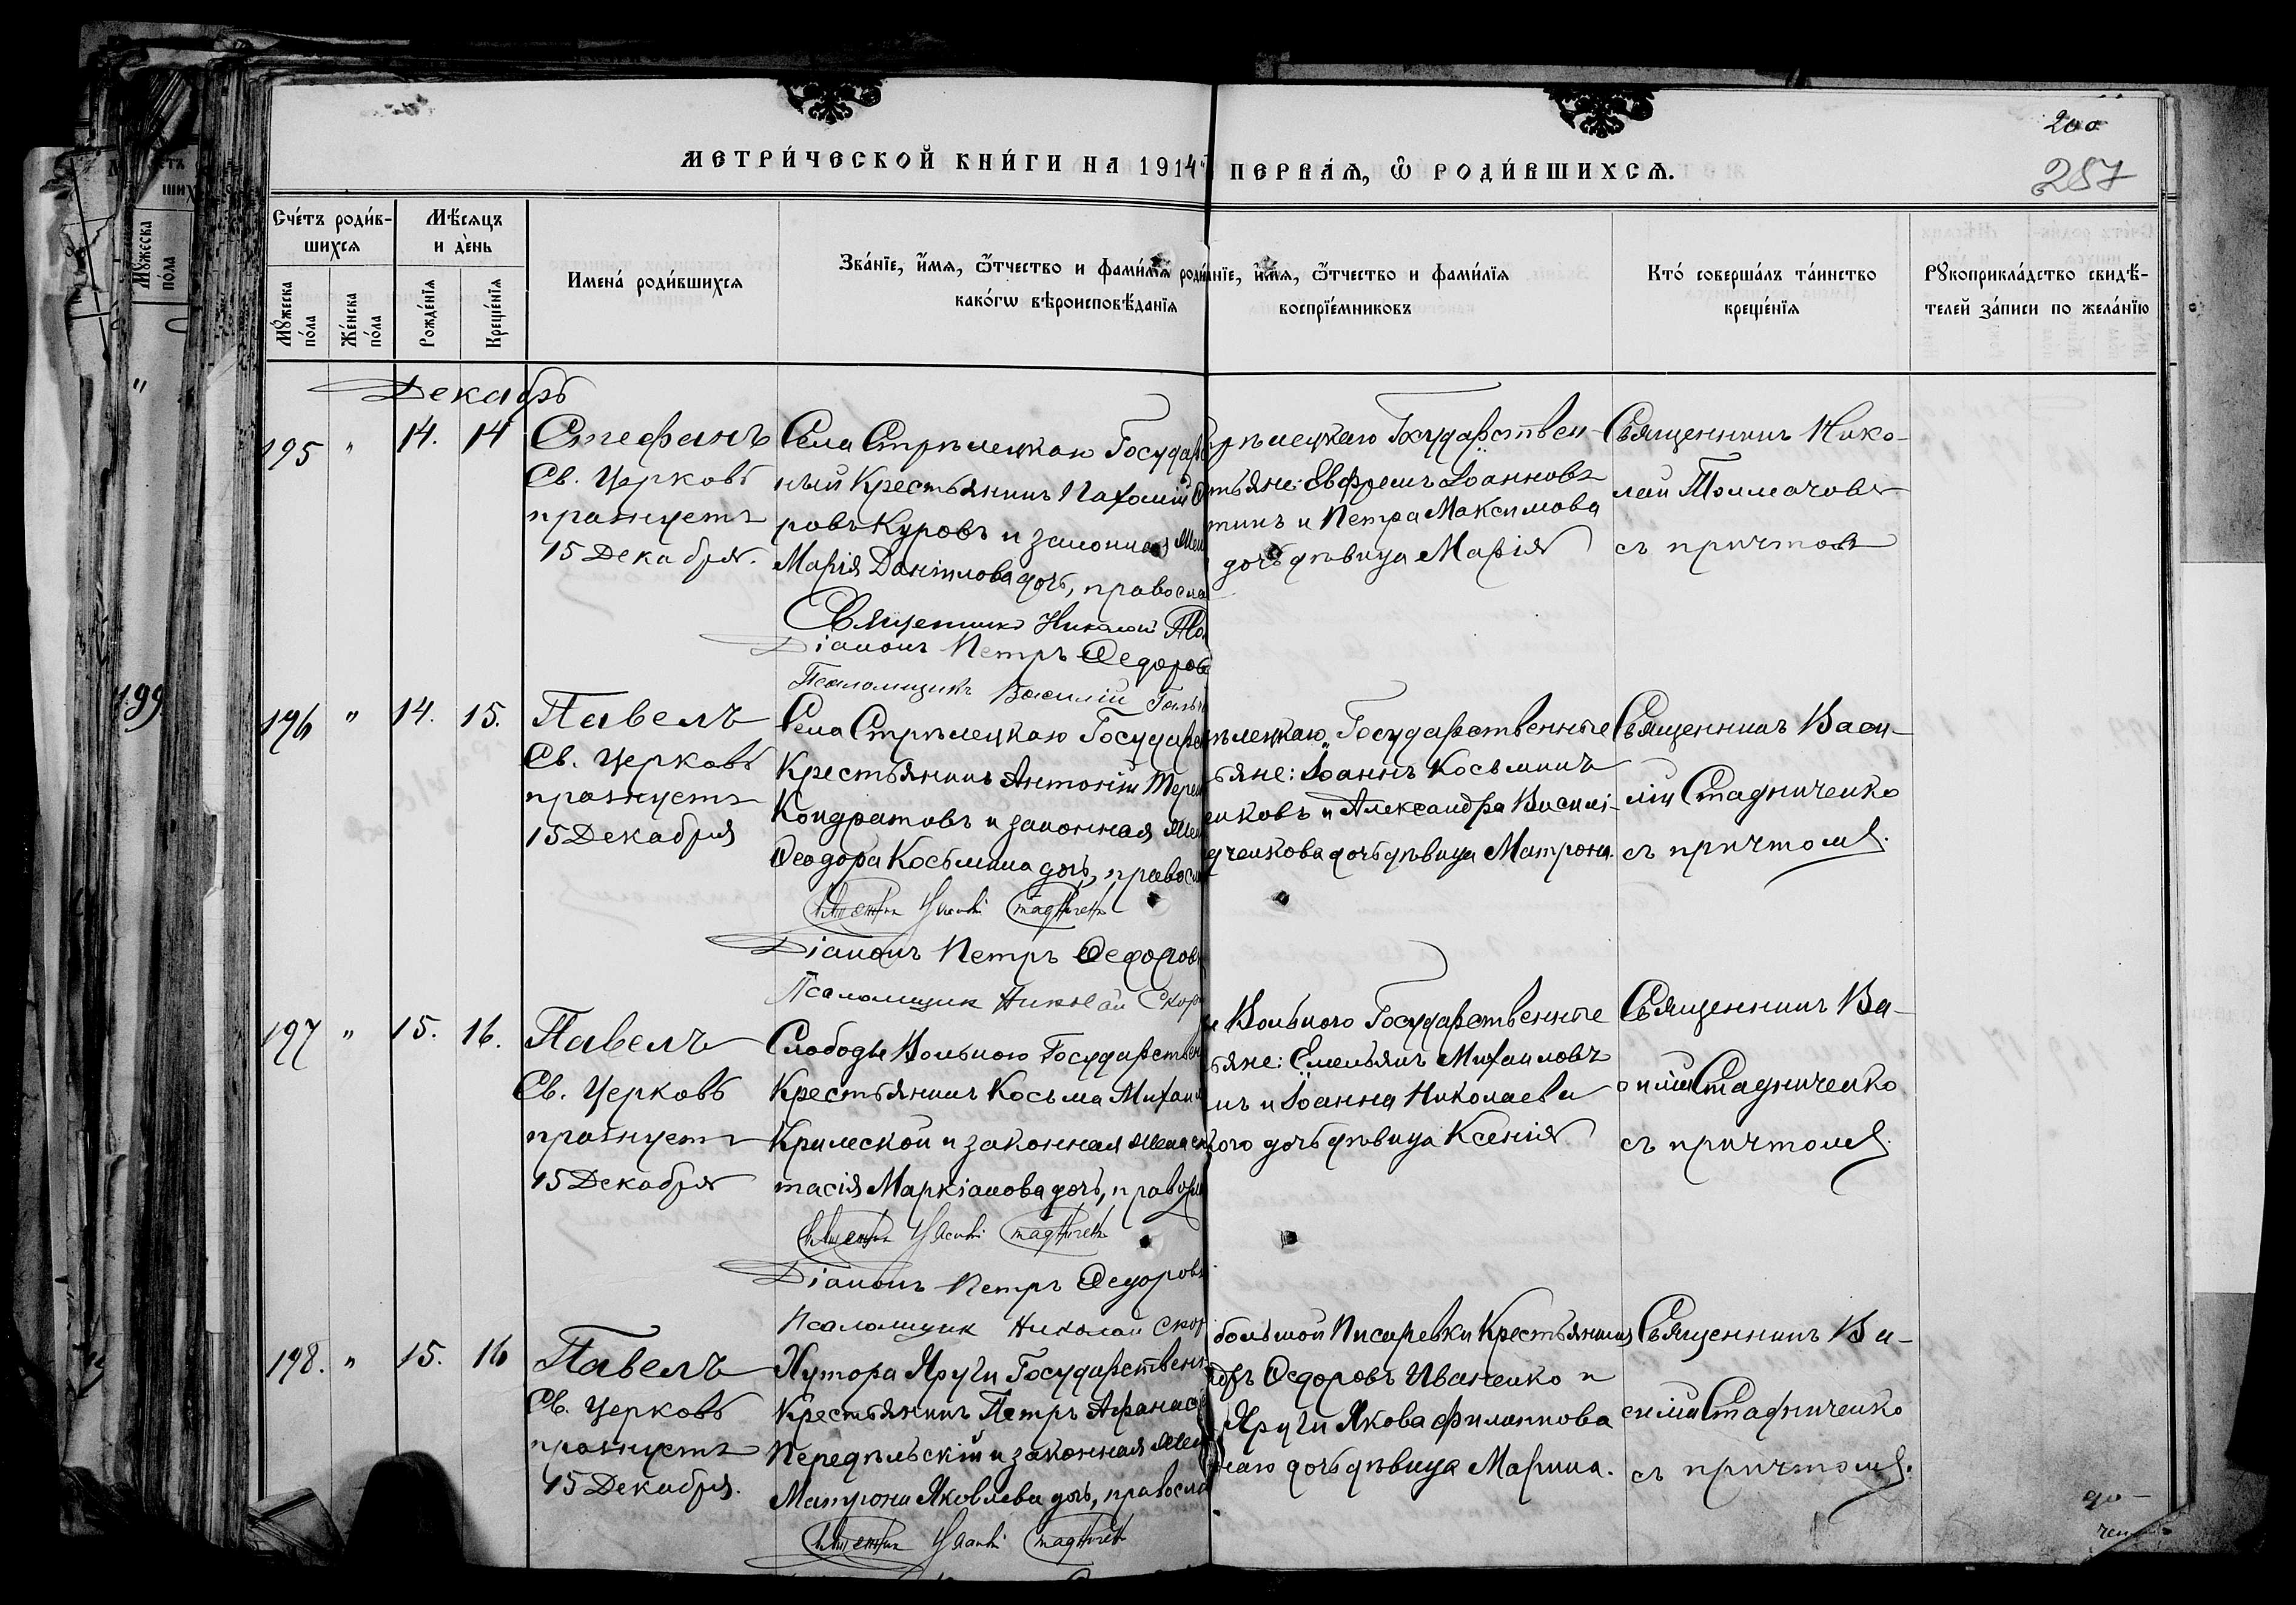 200
257
МЕТРИ́ЧЕСКОЙ КНИ́ГИ НА 1914 ПЕРВА́Ѧ, Ѡ РОДИ́ВШИХСѦ.
Сче́тъ роди́в-
шихсѧ
Мꙋ́жеска
по́ла
Же́нска
по́ла
Мѣ́сѧцъ
и де́нь
Рожде́нїѧ
Креще́нїѧ
Имена́ роди́вшихсѧ
Зва́нїе, и҆́мѧ, ѻ҆́тчество и фами́лїѧ
како́гѡ вѣроисповѣ́данїѧ
и҆́мѧ, ѻ҆́тчество и фами́лїѧ
воспрїе́мниковъ
Кто́ соверша́лъ та́инство
креще́нїѧ
Рꙋкоприкла́дство свидѣ́-
телей за́писи по жела́нїю
Декабрь
195 " 14. 14
Стефанъ
Св. Церковь
празнуетъ
15 Декабря.
Села Стрѣлецкаго Государс
ный Крестьянинъ Пахомій
ровъ Куровъ и законная
Марія Даніилова дочь, правосла
Священникъ Николай
Діаконъ Петръ Ѳедоров
Псаломщикъ Василій
Государствен-
Евфремъ Іоанновъ
и Петра Максимова
дочь дѣвица Марія
Священникъ Нико-
лай Толмачовъ
съ причтомъ
196 " 14. 15.
Павелъ
Св. Церковь
празнуетъ
15 Декабря
Села Стрѣлецкаго Государс
Крестьянинъ Антоній Терен
Кондратовъ и законная
Ѳеодора Косьмина дочь, правосл
Діаконъ Петръ Ѳедоров
Псаломщикъ Николай Скор
Государственные
Іоаннъ Косьминъ
и Александра Василі-
дченкова дочь дѣвица Матрона.
Священникъ Васи-
лій Стадниченко
съ причтомъ.
197 " 15. 16.
Павелъ
Св. Церковь
празнуетъ
15 Декабря
Слободы Вольного Государствен
Крестьянинъ Косьма Михаи
Крымской и законная жена
тасія Маркіанова дочь, правосл
Діаконъ Петръ Ѳедоров
Псаломщикъ Николай Скор
Вольного Государственные
Емельянъ Михаиловъ
и Іоанна Николаева
дочь дѣвица Ксенія
Священникъ Ва-
силій Стадниченко
съ причтомъ.
198. " 15. 16
Павелъ
Св. Церковь
празнуетъ
15 Декабря.
Хутора Яруги Государствен
Крестьянинъ Петръ Афанас
Передѣльскій и законная
Матрона Яковлева дочь, правосла
большой Писаревки Крестьянинъ
Ѳедоровъ Иваненко и
Яруги Якова Филиппова
дочь дѣвица Марина.
Священникъ Ва-
силій Стадниченко
съ причтомъ.
199